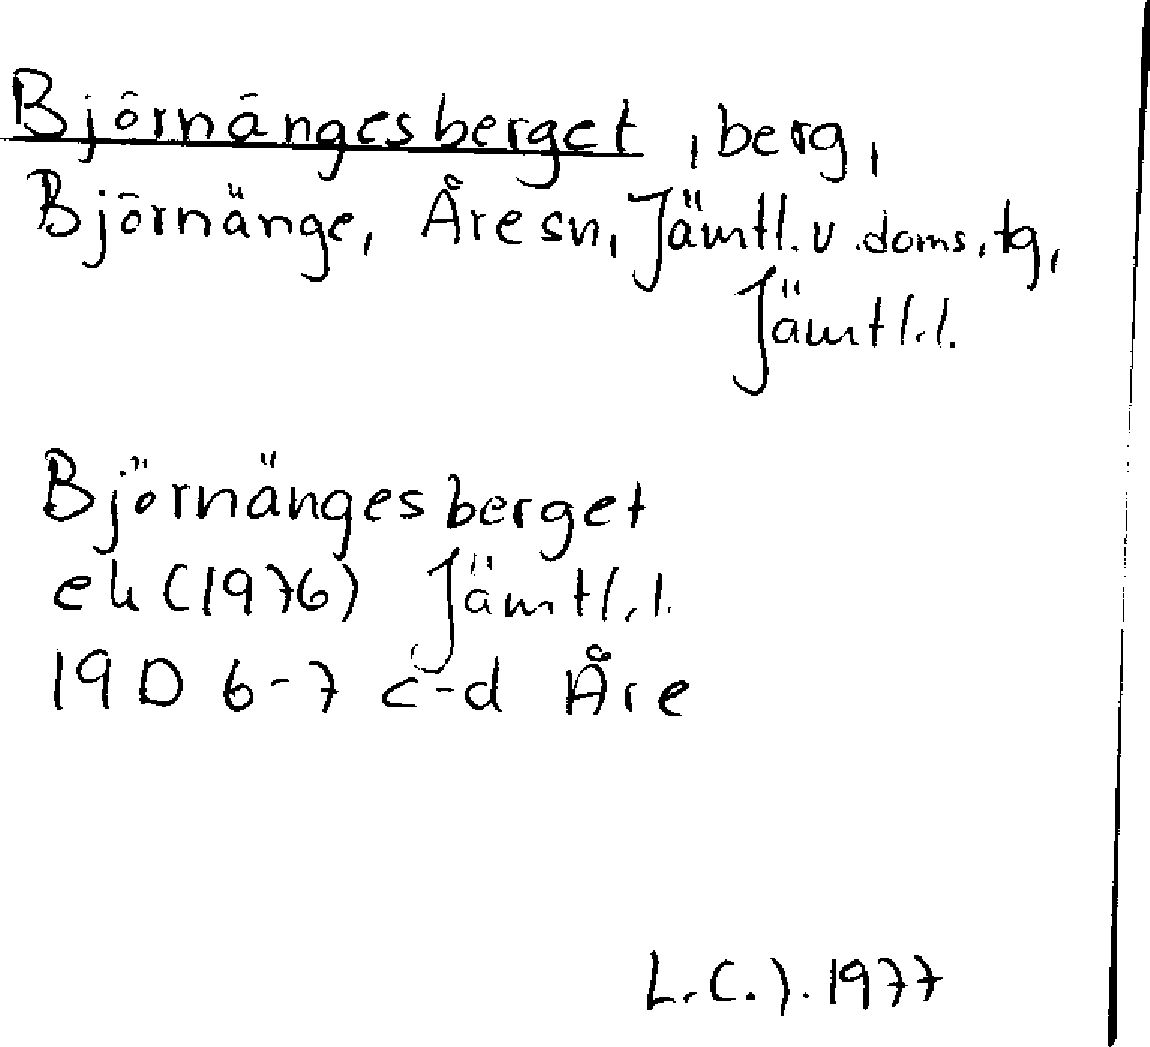 Björnängesberget, berg,
Björnänge, Åre sn, Jämtl. v. doms. tg,
Jämtl. l.
Björnängesberget
ek (1976) Jämtl. l.
19 D 6-7 c-d Åre
L.C.J. 1977